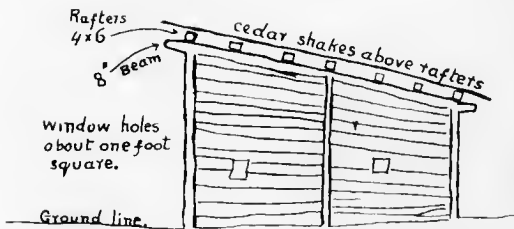 Rafters
4x6
cedar shakes above rafters
8" Beam
window holes
about one foot
square.
Ground line.